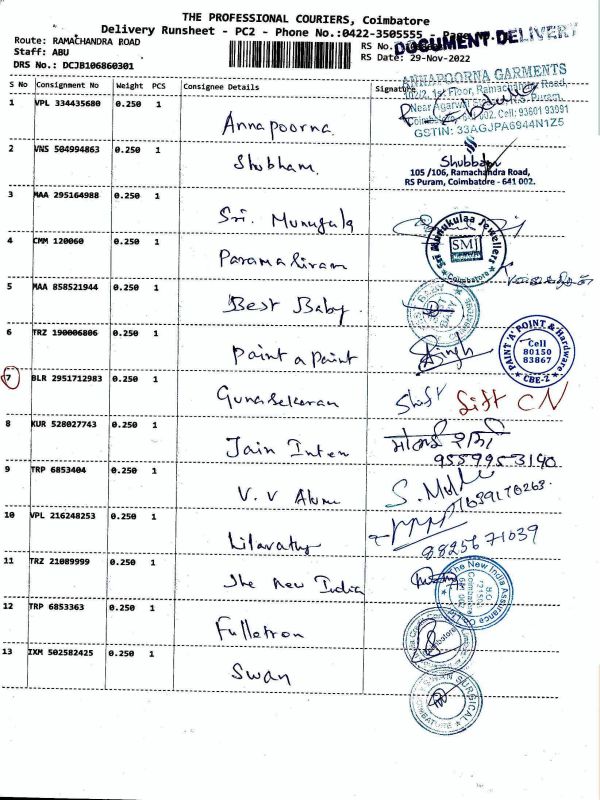 THE PROFESSIONAL COURIERS, Coimbatore
Delivery Runsheet - PC2 - Phone No.:0422-3505555 - Page
DOCUMENT DELIVERY
Route: RAMACHANDRA ROAD
RS No.
Staff: ABU
RS Date: 29-Nov-2022
DRS No.: DCJB106860301
S No Consignment No Weight PCS Consignee Details Signature
ANNAPOORNA GARMENTS
102/2, 1st Floor, Ramachandra Road,
Near Agarwal R.S. Puram,
Coimbatore 641 002. Cell: 93601 93091
GSTIN: 33AGJPA6944N1Z5
1 VPL 334435680 0.250 1 Annapoorna
2 VNS 504994863 0.250 1 Shubham
Shubham
105 /106, Ramachandra Road,
RS Puram, Coimbatore - 641 002.
3 MAA 295164988 0.250 1 Sri. Murugala
Sri Murukulaa Jewellers
SMJ
Coimbatore
4 CMM 120060 0.250 1 Paramasivam
5 MAA 858521944 0.250 1 Best Baby
BEST BABY
6 TRZ 190006806 0.250 1 Paint a Paint
Singh
PAINT 'A' POINT & Hardware
Cell
80150
83867
CBE-2
7 BLR 2951712983 0.250 1 Gunasekaran
Shift Sift CN
8 KUR 528027743 0.250 1 Jain Inten
9559953140
9 TRP 6853404 0.250 1 V. V
10 VPL 216248253 0.250 1 Lilavathy
8825671039
11 TRZ 21089999 0.250 1 The New India
The New India Assurance Co. Ltd
Coimbatore
12 TRP 6853363 0.250 1 Fulletron
Coimbatore
13 IXM 502582425 0.250 1 Swan
SWAN SURGICAL
COIMBATORE